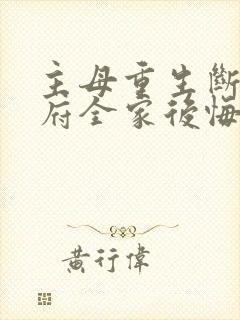 主母重生斷
府全家後悔
黃行偉